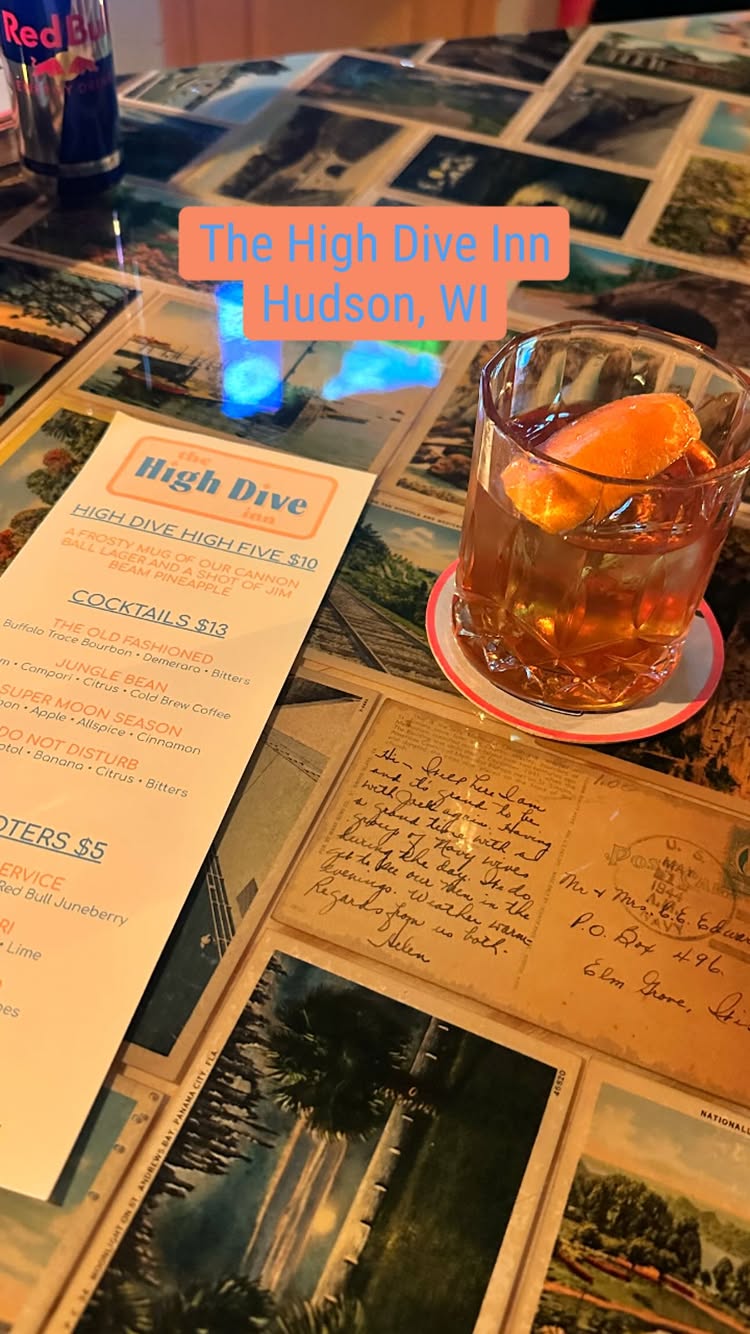 Red Bull
ENERGY DRINK
The High Dive Inn
Hudson, WI
the
High Dive
inn
HIGH DIVE HIGH FIVE $10
A FROSTY MUG OF OUR CANNON
BALL LAGER AND A SHOT OF JIM
BEAM PINEAPPLE
COCKTAILS $13
THE OLD FASHIONED
Buffalo Trace Bourbon • Demeraro • Bitters
JUNGLE BEAN
• Campari • Citrus • Cold Brew Coffee
SUPER MOON SEASON
• Apple • Allspice • Cinnamon
DO NOT DISTURB
• Banana • Citrus • Bitters
$5
Red Bull Juneberry
• Lime
Hi – Here I am
and it's grand to be
with Jack again. Having
a grand time with a
group of Navy wives
during the day. We do
get to see our men in the
evenings. Weather warm–
Regards from us both.
Helen
U. S.
MAR
1944
NAVY
Mr + Mrs. C. E.
P.O. Box 496.
Elm Grove,
P. C. 94 MOONLIGHT ON ST. ANDREWS BAY, PANAMA CITY, FLA.
45820